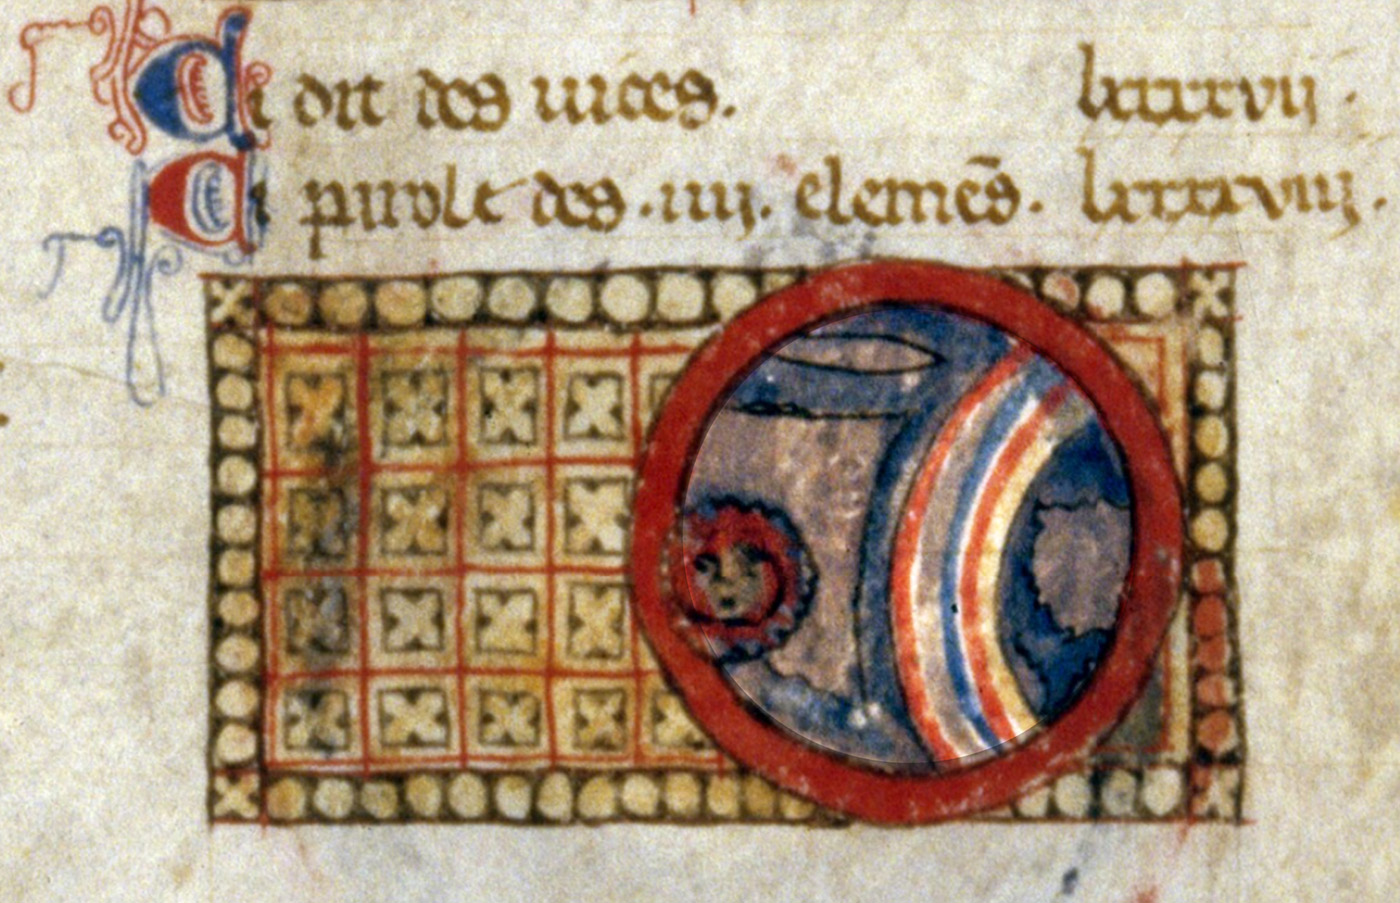 Ci dit des uices. lxxxxvij.
Ci parole des .iiij. elemēs. lxxxxviij.